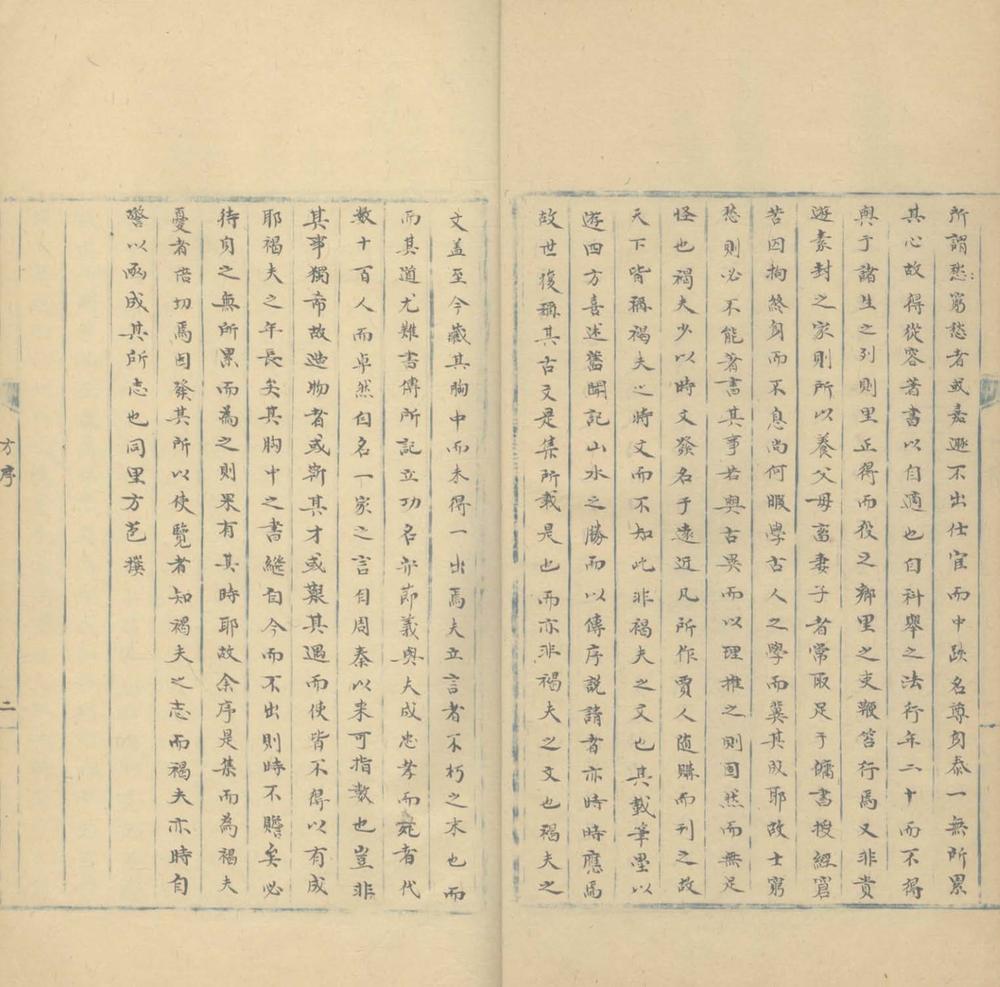 所謂愁窮愁者或嘉遯不出仕宦而中跌名尊身泰一無所累
其心故得從容著書以自適也自科舉之法行年二十而不得
與于諸生之列則里正得而役之鄉里之吏鞭笞行焉又非貴
遊素封之家則所以養父毋畜妻子者常取足于傭書授經窘
苦囚拘終身而不息尚何暇學古人之學而冀其成耶故士窮
愁則必不能著書其事若與古異而以理推之則固然而無足
怪也褐夫少以時文發名于遠近凡所作賈人随購而刊之故
天下皆稱褐夫之時文而不知此非褐夫之文也其載筆墨以
遊四方喜述舊聞記山水之勝而以傳序説請者亦時時應焉
故世復稱其古文是集所載是也而亦非褐夫之文也褐夫之
文盖至今藏其胸中而未得一出焉夫立言者不朽之末也而
而其道尤難書傳所記立功名守節義與夫成忠孝而死者代
數十百人而卓然自名一家之言自周秦以来可指數也豈非
其事獨希故造物者或靳其才或艱其遇而使皆不得以有成
耶褐夫之年長矣其胸中之書縱自今而不出則時不贍矣必
待身之無所累而為之則果有其時耶故余序是集而為褐夫
憂者倍切焉因發其所以使覽者知褐夫之志而褐夫亦時自
警以函成其所志也同里方苞撰
方序
二